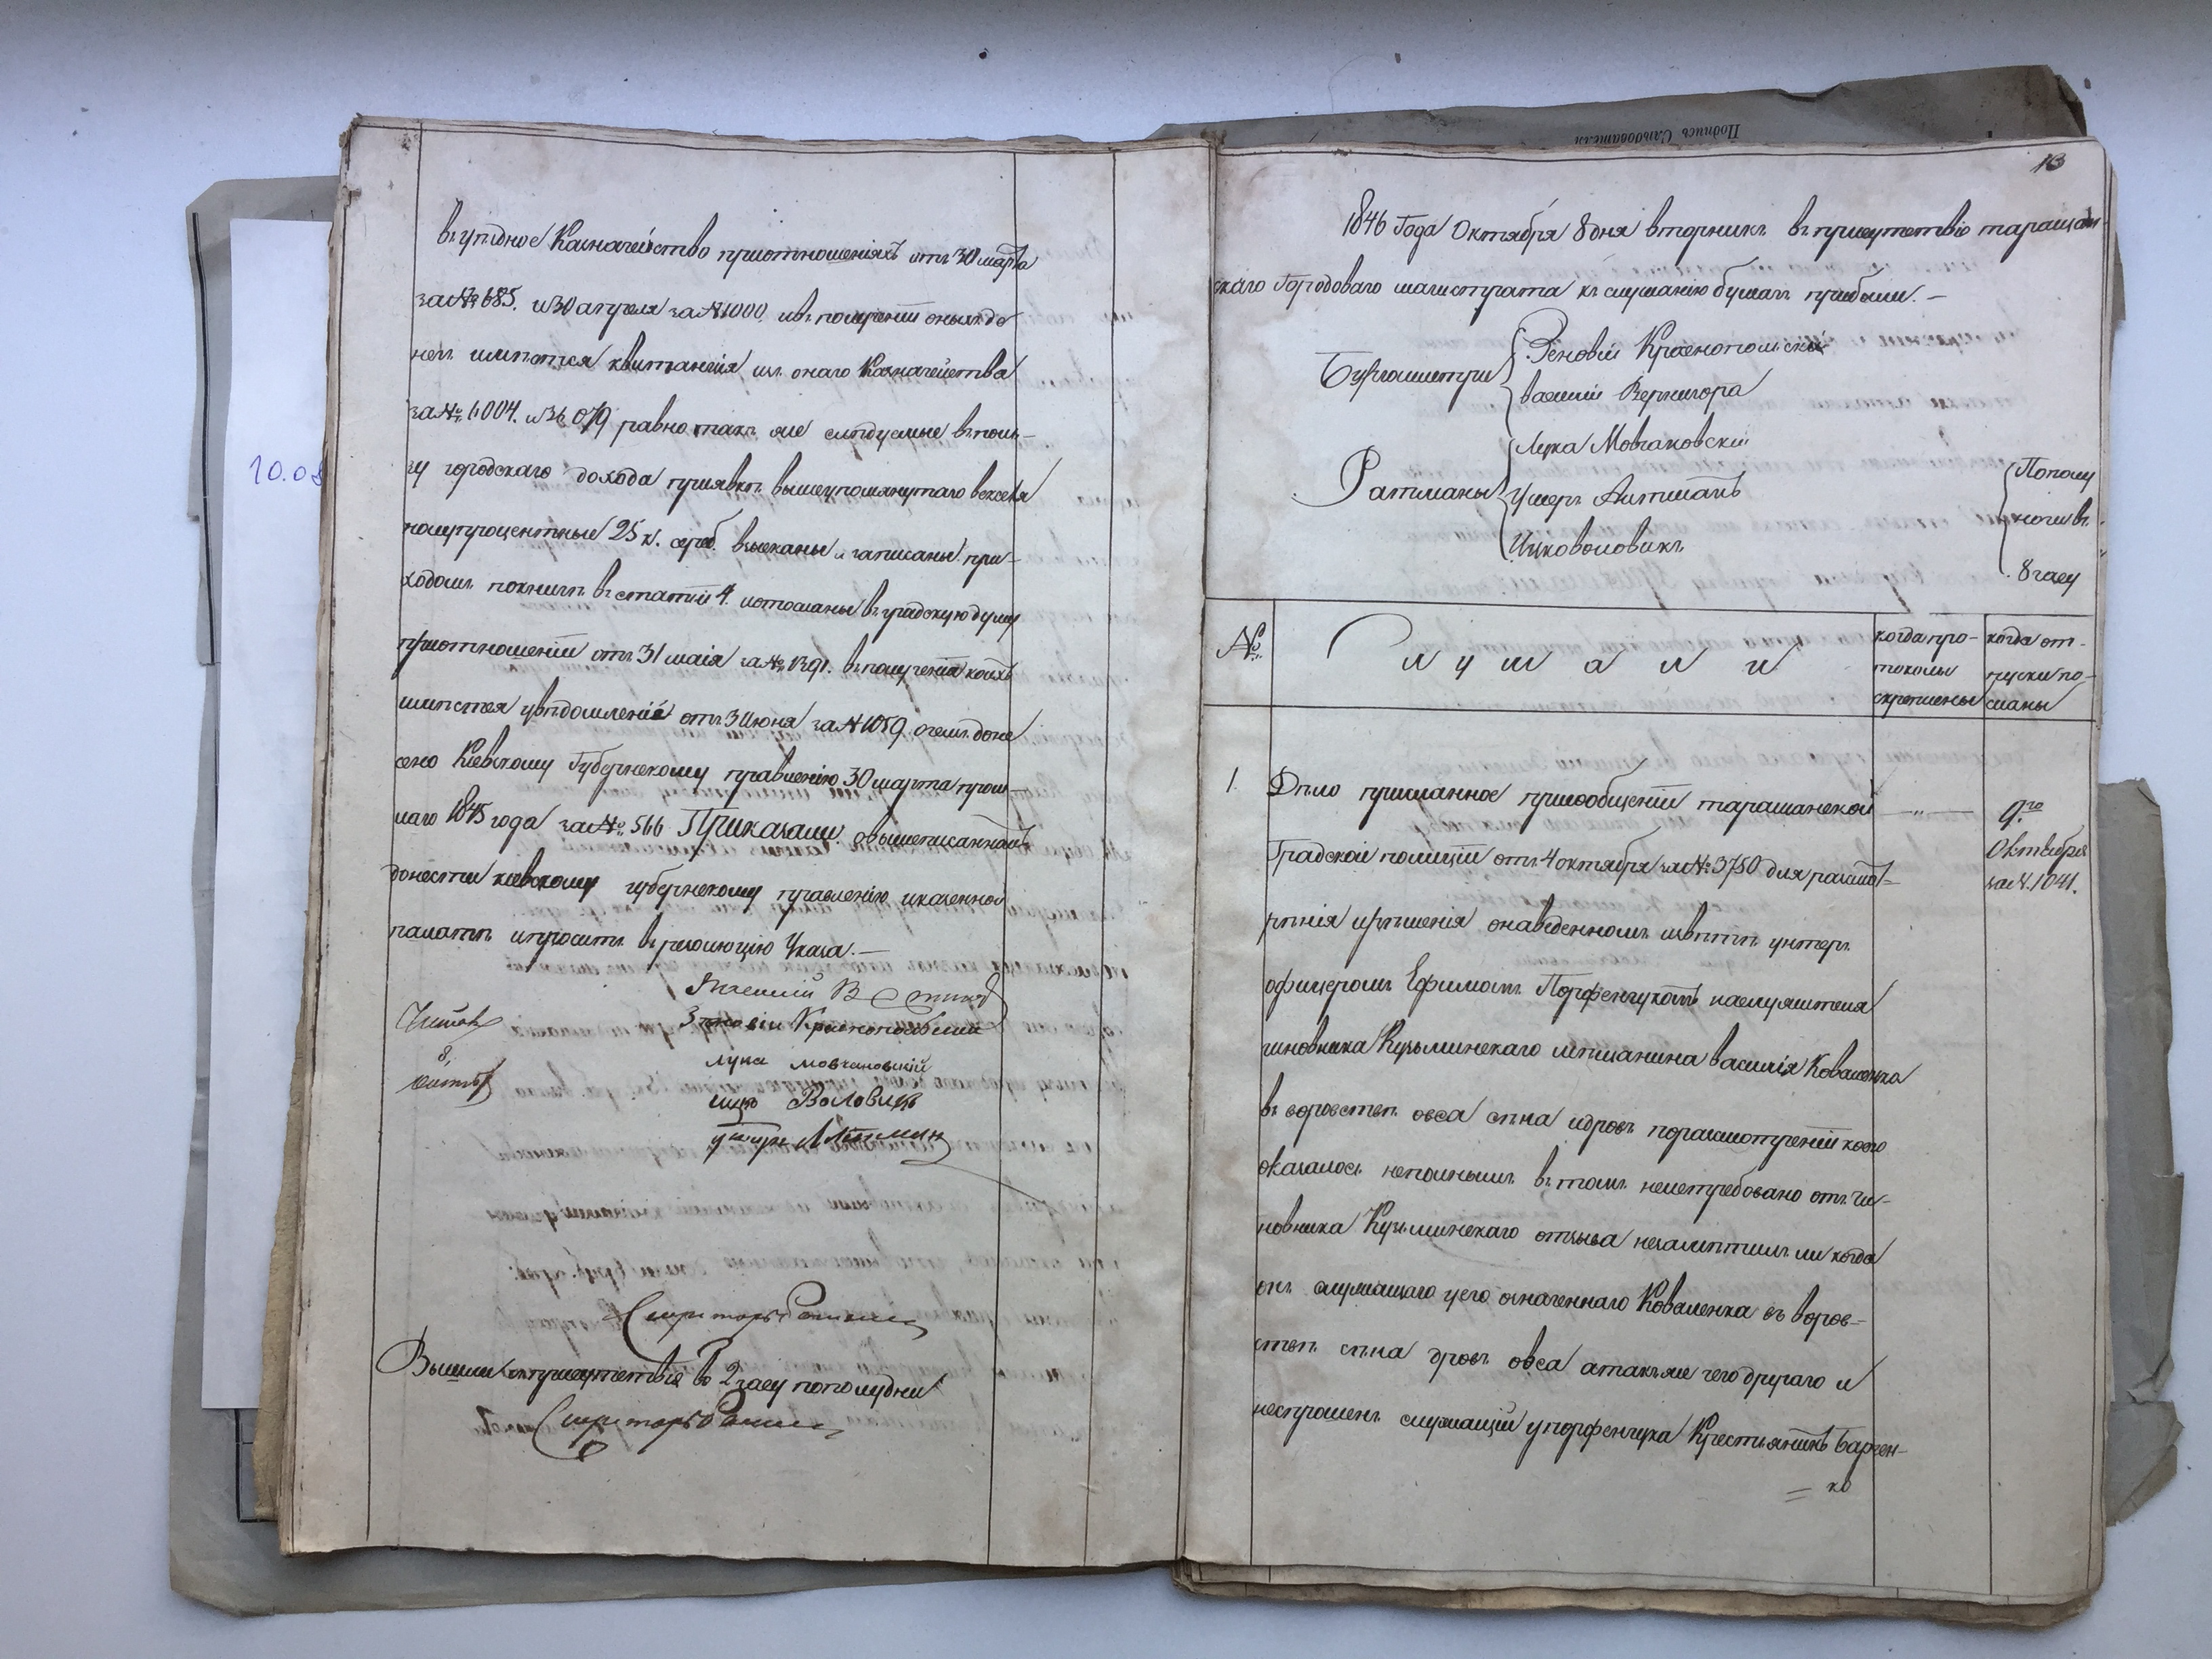 въ уѣздное Казначейство приотношеніяхъ отъ 30 марта
за № 685. и 30 апреля за № 1000. ивъ полученіи оныхъ де
негъ имѣются квитанціи изъ онаго Казначейства
за № 1004. и 079 равно такъ же слѣдуемые въ поль-
зу городскаго дохода приявкѣ вышеупомянутаго векселя
полупроцентные 25 к. сереб. взысканы и записаны при-
ходомъ покнигѣ въ статьи 4. иотосланы въ градскую думу
приотношеніи отъ 31 маія за № 1391. въ полученіи коихъ
имѣется увѣдомленіе отъ 3 Июня за № 1059. очемъ доне
сено Кіевскому Губернскому правленію 30 марта прош-
лаго 1845 года за № 566 Приказали: овышеписанномъ
донести кіевскому губернскому правленію иказенной
палатѣ ипросить въ резолюцію Указа. —
Зѣновій Краснопольскій
Читалъ
8,
октяб
лука мовчановскій
ицко Воловикъ
умеръ Литманъ
Секретарь
Вышли изъ присутствія во 2 часу пополудни
Секретарь
13
1846 Года Октября 8 дня вторникъ въ присутствіе таращан-
скаго Городоваго магистрата къ слушанію бумагъ прибыли. —
Бургомистры
Зеновій Краснопольскій
василій Вернигора
Ратманы
Лука Мовчановскій
Умеръ Литманъ
Ицковоловикъ
Пополу
ночи въ
8 часу
№
Слушали
когда про-
токолы
скреплены
когда от-
пуски по-
сланы
1.
Дѣло присланное присообщеніи таращанской
Градской полиціи отъ 4 октября за № 3750 для разсмот-
рѣнія ирѣшенія онаведенномъ извѣтѣ унтеръ
офицеромъ Ефимомъ Порфенчукомъ наслужителя
чиновника Кузьминскаго мѣщанина василія Коваленка
въ воровствѣ овса сѣна идровъ поразсмотреніи коего
оказалось неполнымъ въ томъ неистребовано отъ чи-
новника Кузьминскаго отзыва незамѣтилъ ли когда
онъ служащаго унего означеннаго Коваленка въ воров-
ствѣ сѣна дровъ овса атакъже чего другаго и
неспрошенъ служащій упорфенчука Крестьянинъ Барчен-
= ко
9го
Октября
за № 1041.